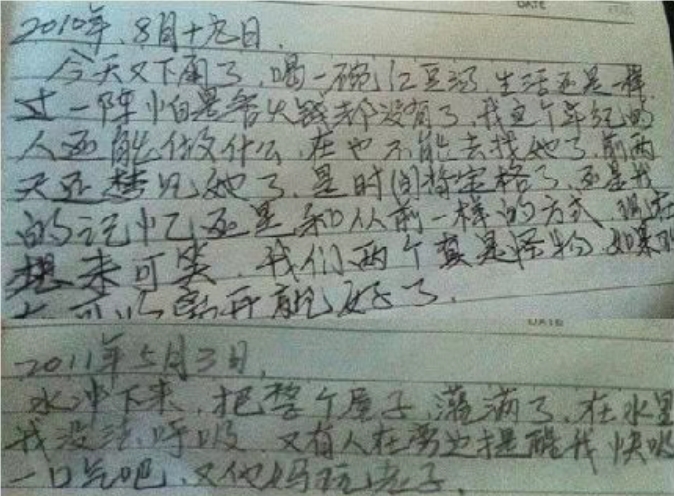 DATE
2010年.8月十九日.
今天又下雨了,喝一碗红豆汤,生活还是一样
过一阵怕是沓火钱都没有了,我这个年纪的
人还能做什么,在也不能去找她了,前两
天还梦见她了,是时间将定格了,还是我
的记忆还是和从前一样的方式,现在
想来可笑,我们两个真是怪物,如果
可以 开就好了.
DATE
2011年5月3日,
水冲下来,把整个屋子,灌满了,在水里
我没法呼吸,又有人在旁边提醒我快吸
一口气吧,又他妈玩老子.